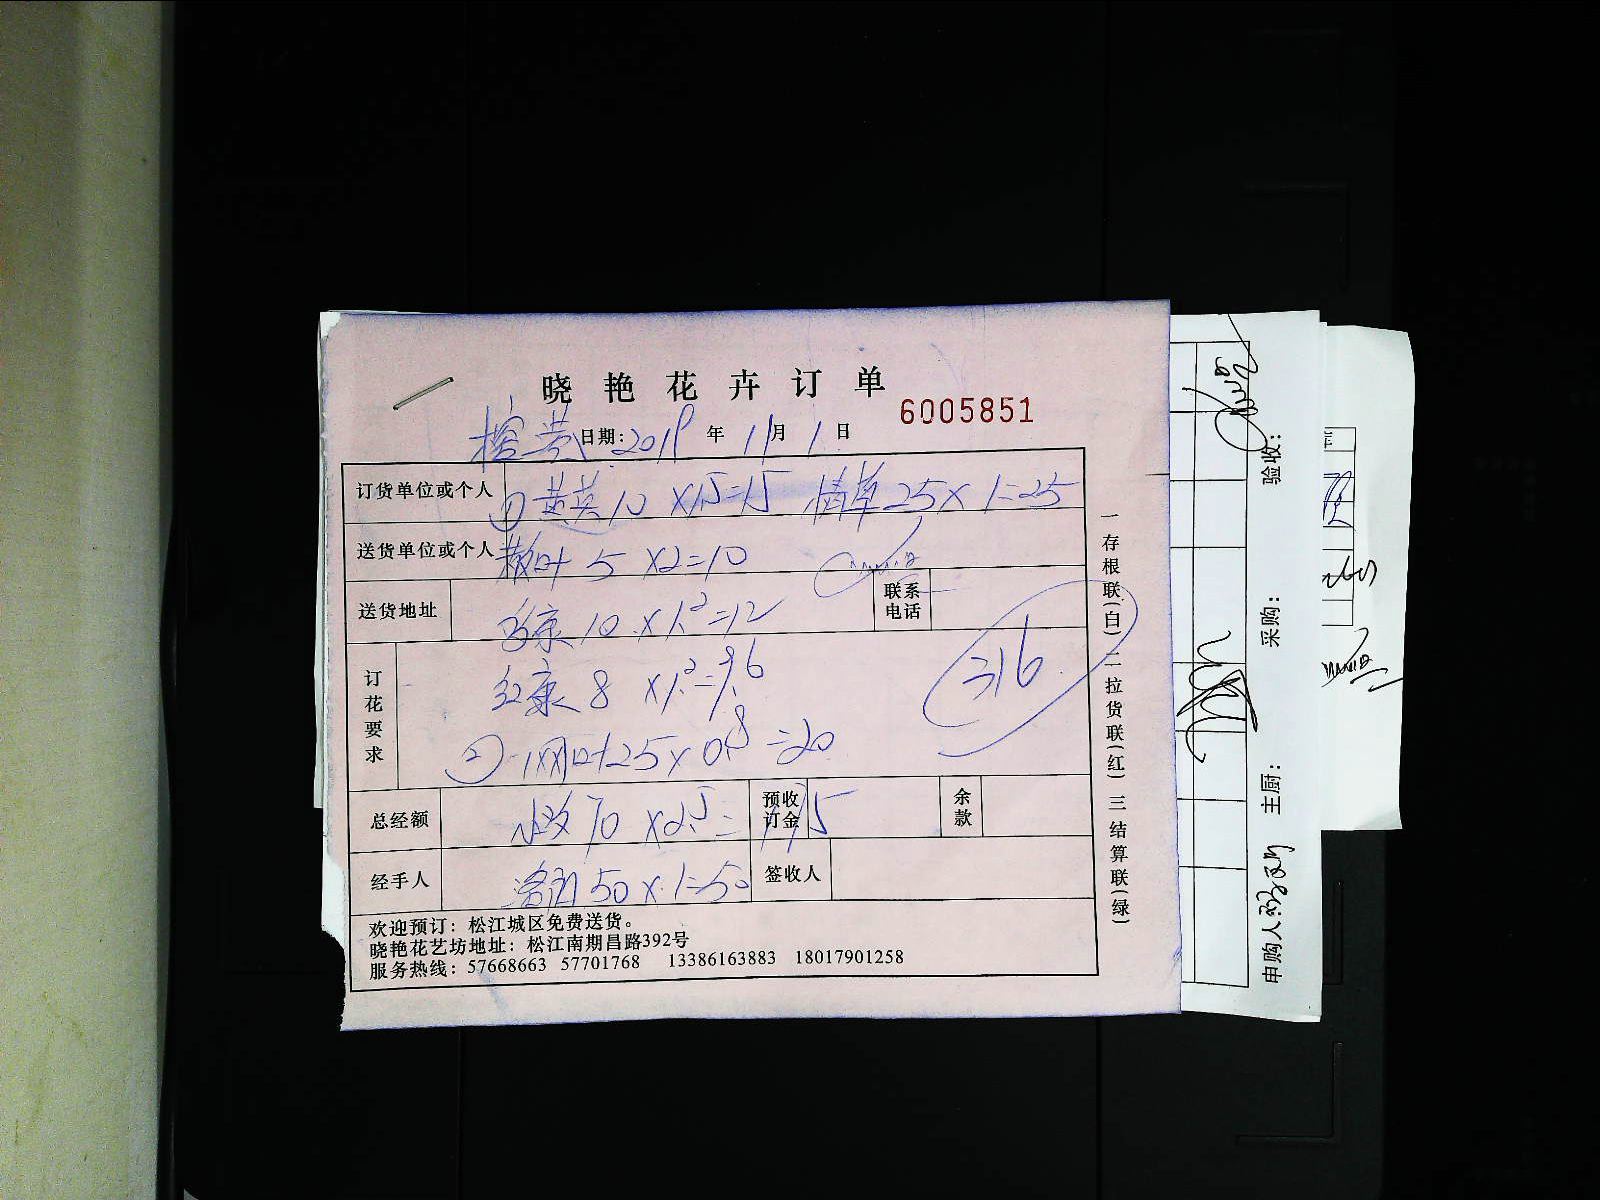 晓艳花卉订单
6005851
日期: 2019年11月1日
订货单位或个人 ① 黄英 10 × 1.5 = 15 情草 25 × 1 = 25
送货单位或个人 散叶 5 × 2 = 10
送货地址 10 × 1.2 = 12 联系电话
订花要求 红康 8 × 1.2 = 9.6
316
② 25 × 0.8 = 20
总经额 70 × 2.5 = 175 预收订金 余款
经手人 50 × 1 = 50 签收人
欢迎预订：松江城区免费送货。
晓艳花艺坊地址：松江南期昌路392号
服务热线：57668663 57701768 13386163883 18017901258
一存根联(白) 二拉货联(红) 三结算联(绿)
申购人: 主厨: 采购: 验收: